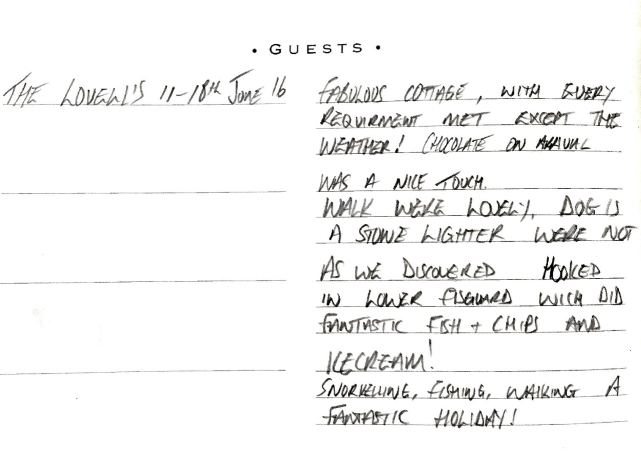 • GUESTS •
THE LOVELL'S 11-18th JUNE 16
FABULOUS COTTAGE, WITH EVERY
REQUIRMENT MET EXCEPT THE
WEATHER! CHOCOLATE ON ARRIVAL
WAS A NICE TOUCH.
WALK WERE LOVELY, DOG IS
A STONE LIGHTER WERE NOT
AS WE DISCOVERED HOOKED
IN LOWER FISGUARD WICH DID
FANTASTIC FISH + CHIPS AND
ICECREAM!
SNORKELLING, FISHING, WALKING A
FANTASTIC HOLIDAY!